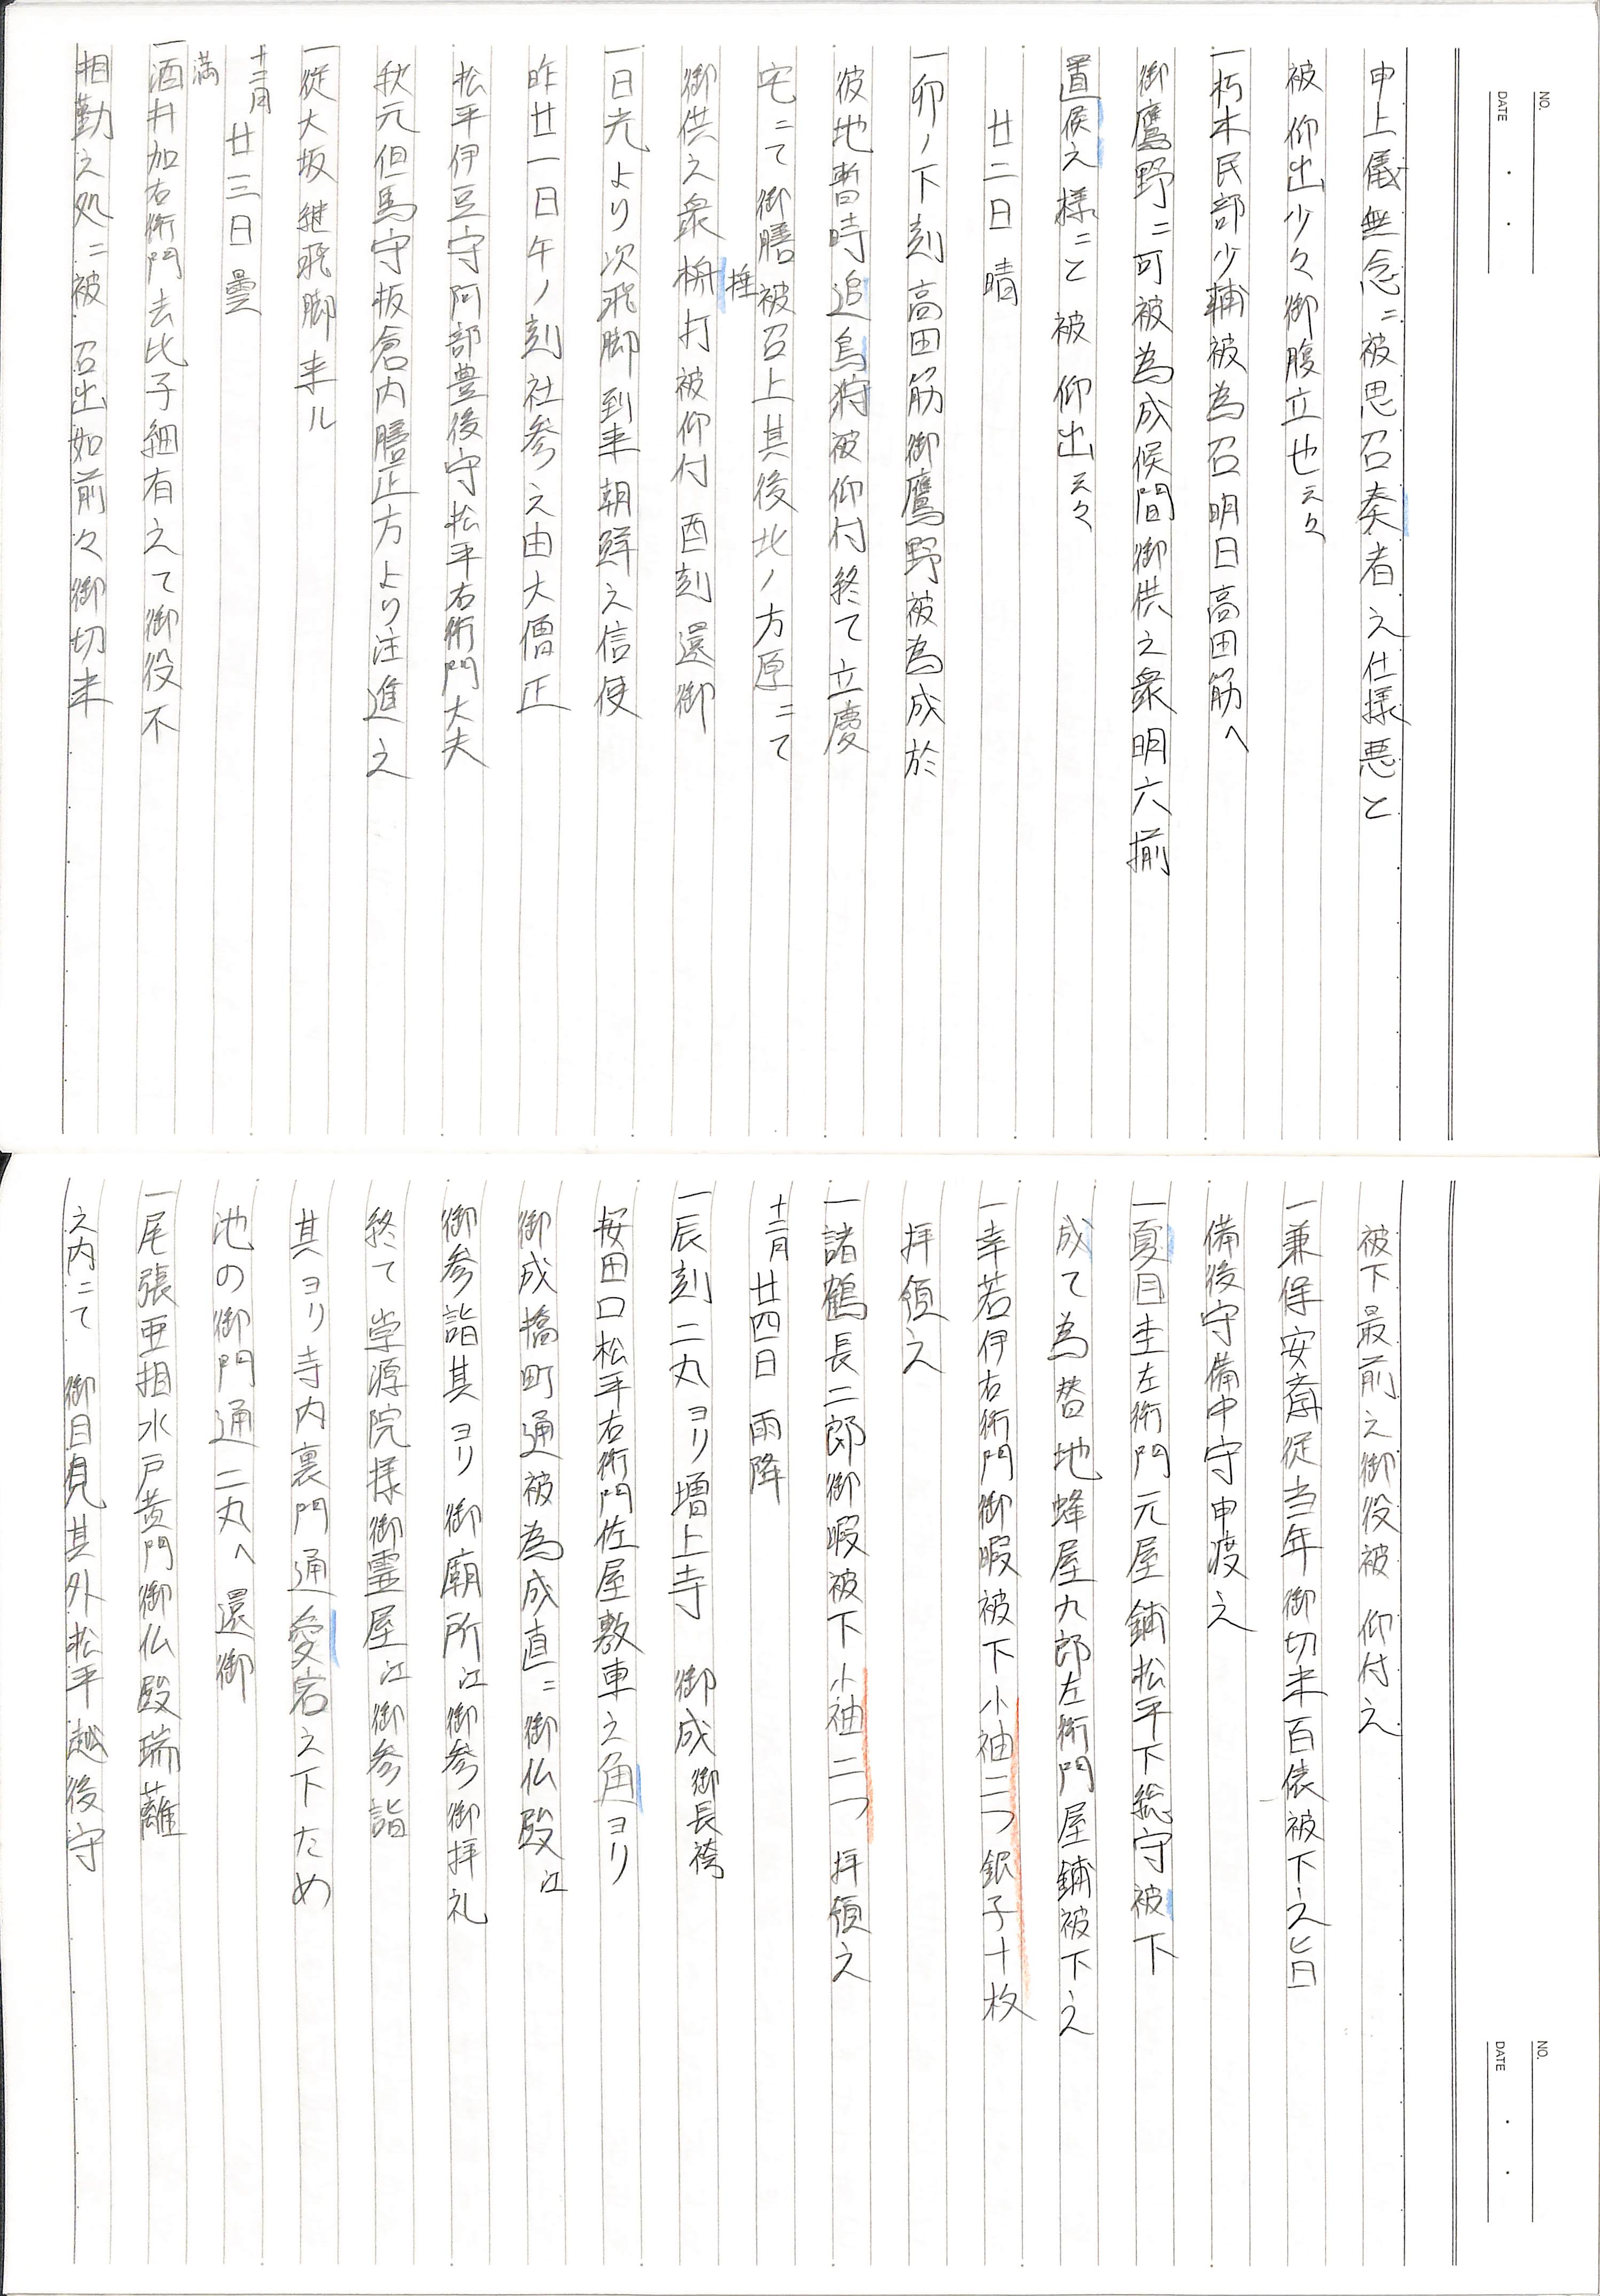 NO.
DATE
申上儀無念ニ被思召奏者之仕様悪と
被仰出少々御腹立也云々
一朽木民部少輔被為召明日高田筋へ
御鷹野ニ可被為成候間御供之衆明六揃
置候之様ニと被仰出云々
廿二日晴
一卯ノ下刻高田筋御鷹野被為成於
彼地暫時追鳥狩被仰付終て立慶
宅ニて御膳被召上其後北ノ方原ニて
御供之衆栴打被仰付酉刻還御
捶
一日光より次飛脚到来朝鮮之信使
昨廿一日午ノ刻社参之由大僧正
松平伊豆守阿部豊後守松平右衛門大夫
秋元但馬守板倉内膳正方より注進之
一従大坂継飛脚来ル
十二月廿三日曇
満
一酒井加右衛門去比子細有之て御役不
相勤之処ニ被召出如前々御切米
NO.
DATE
被下最前之御役被仰付之
一兼保安斎従当年御切米百俵被下之旨
備後守備中守申渡之
一夏目杢左衛門元屋鋪松平下総守被下
成て為替地蜂屋九郎左衛門屋鋪被下之
一幸若伊右衛門御暇被下小袖二つ銀子十枚
拝領之
一諸鶴長二郎御暇被下小袖二つ拝領之
十二月廿四日雨降
一辰刻二丸ヨリ増上寺御成御長袴
桜田口松平右衛門佐屋敷車之角ヨリ
御成橋町通被為成直ニ御仏殿江
御参詣其ヨリ御廟所江御参御拝礼
終て崇源院様御霊屋江御参詣
其ヨリ寺内裏門通愛宕之下ため
池の御門通二丸へ還御
一尾張亜相水戸黄門御仏殿瑞蘺
之内ニて御目見其外松平越後守